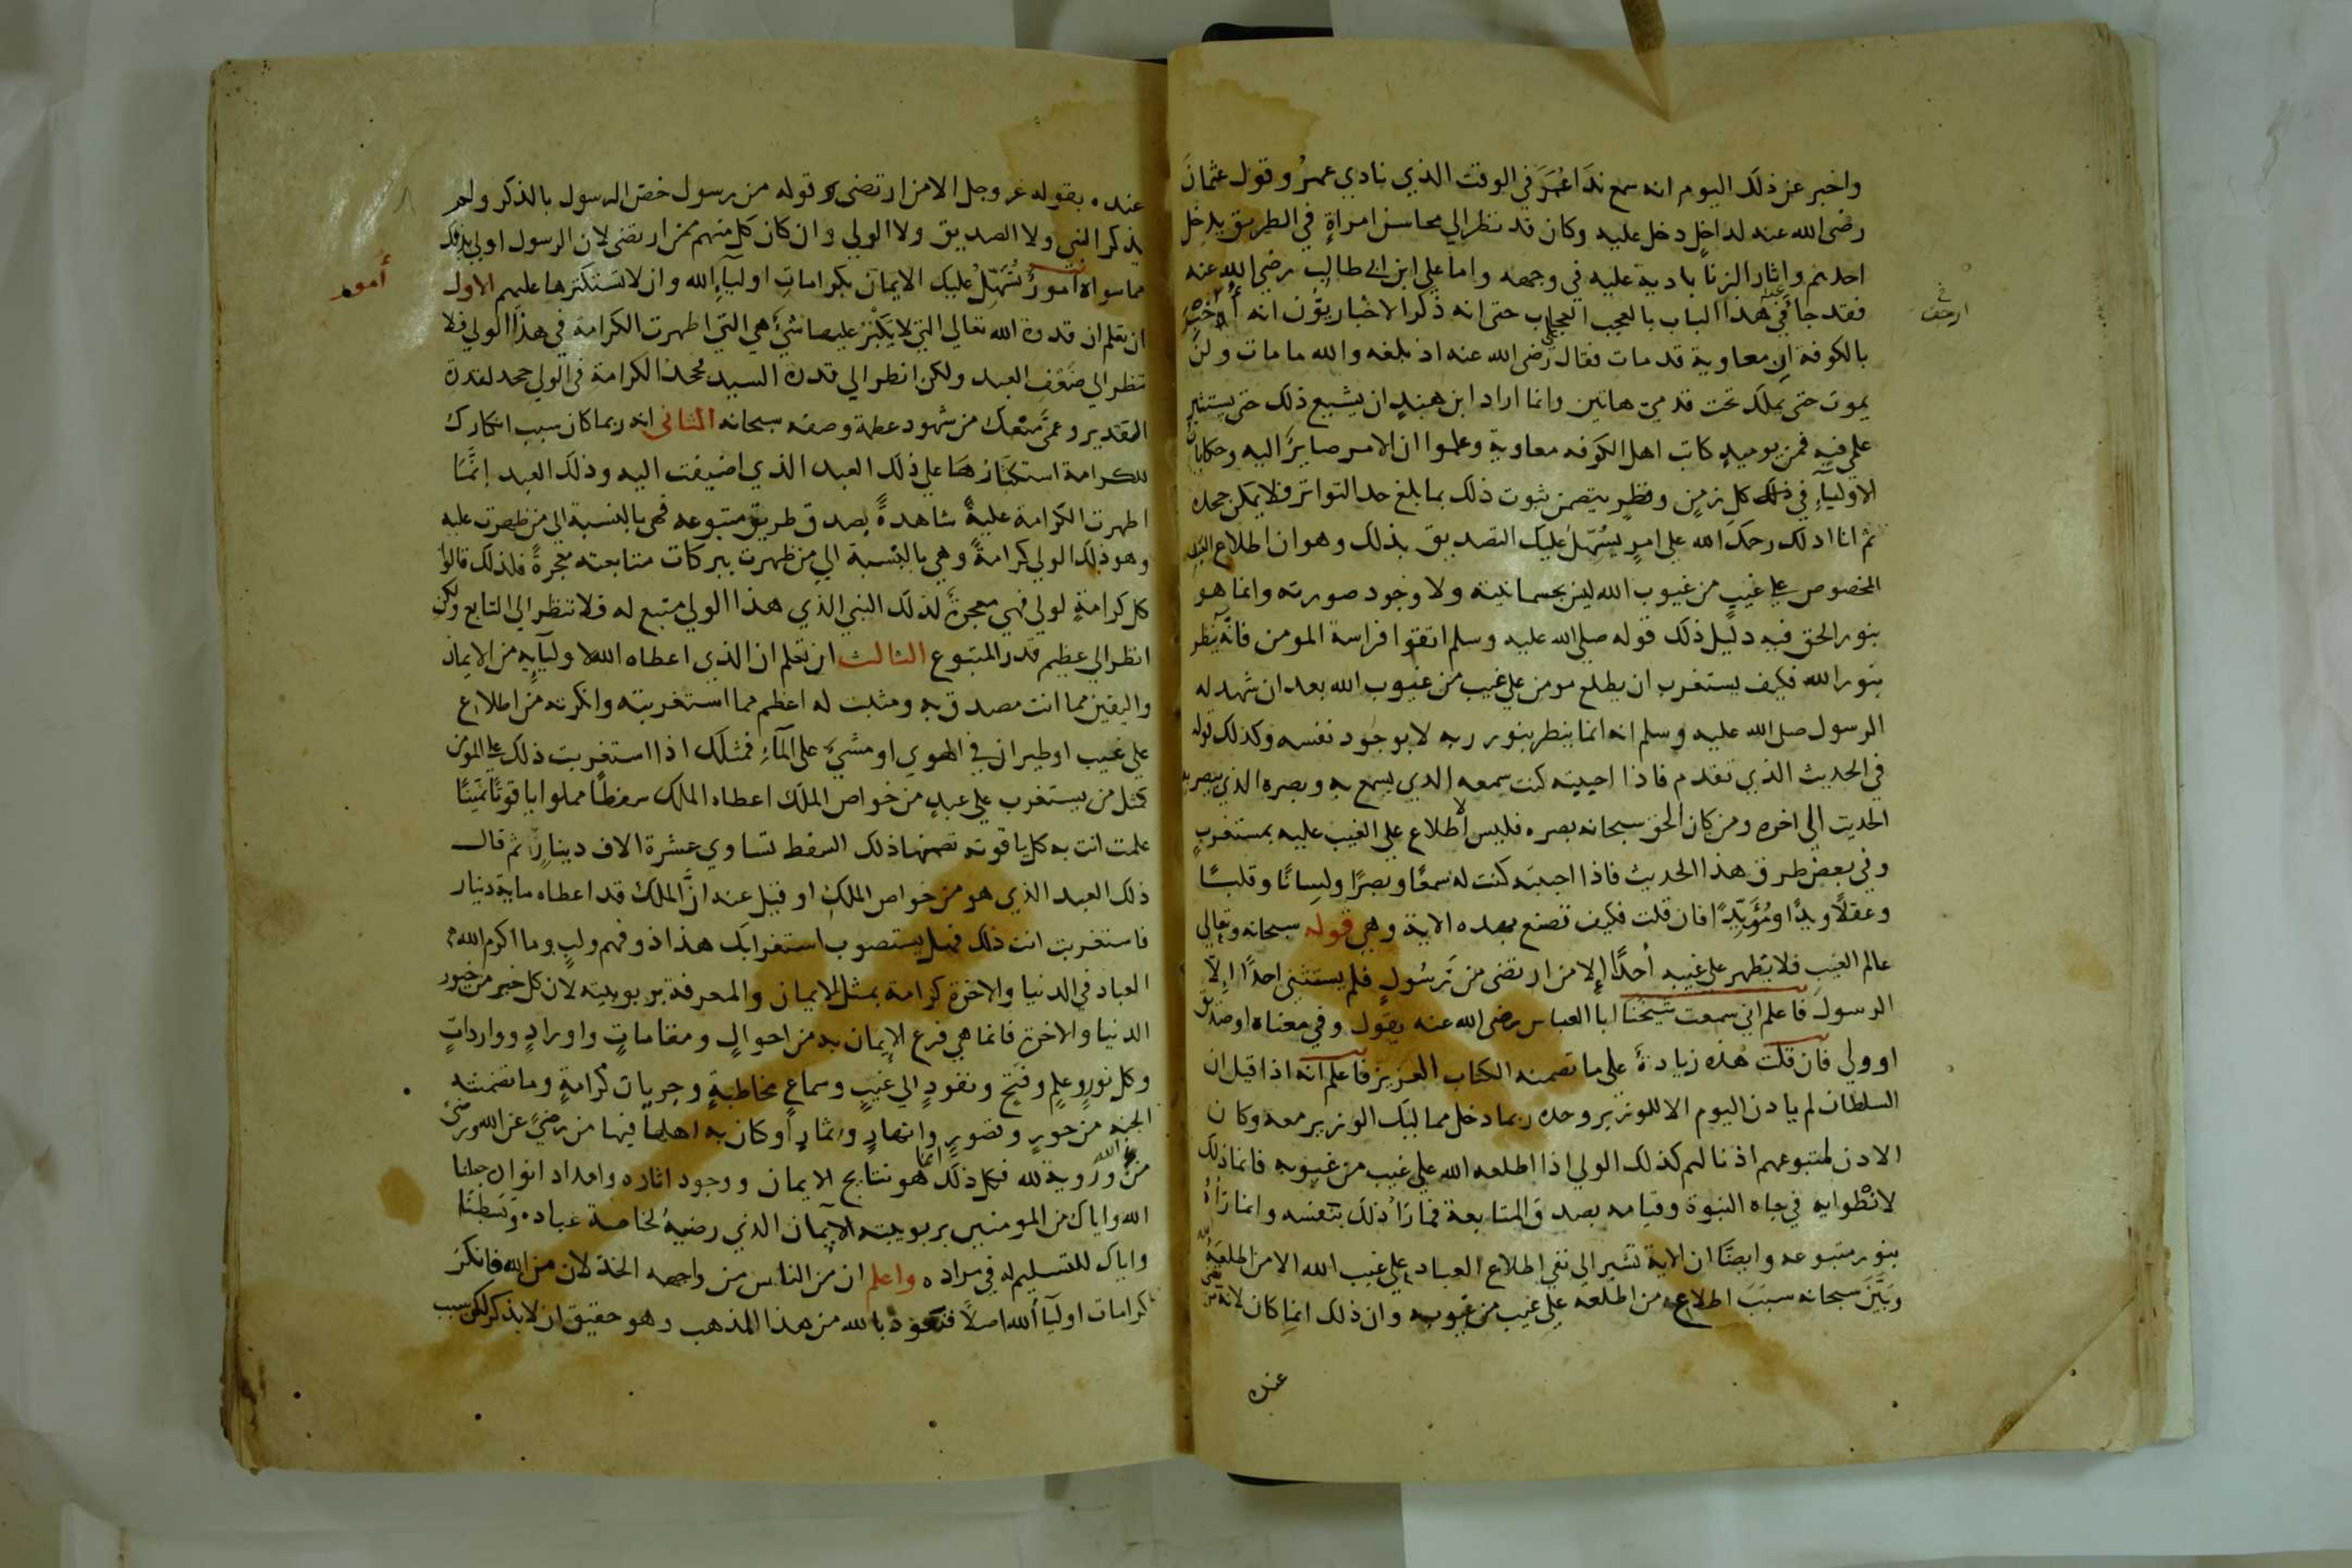 واخبر عن ذلك اليوم انه سمع ندا عُمَرَ في الوقت الذي نادي عمرُ وقول عثمانَ
رضى الله عنه لداخلٍ دخل عليه وكان قد نظر الي محاسن امراةٍ في الطريق يدخل
احدهم واثار الزنا بادية عليه في وجهه واما علي ابن ابي طالب رضي الله عنه
فقد جا في هذا الباب بالعجب العجاب حتى انه ذكر الاخباريّون انه أُخْبِرَ
ارجف
بالكوفة ان معاوية قد مات فقال علي رضى الله عنه اذ بلغه والله ما مات ولن
يموت حتى يملك تحت قدميّ هاتين وانما اراد ابن هندٍ ان يشيع ذلك حتى يستثير
علمي فيه فمن يوميذٍ كاتب اهل الكوفه معاوية وعلموا ان الامر صايرٌ اليه وحكايات
الاولياءِ في ذلك كل زمنٍ وقطرٍ يتضمن ثبوت ذلك بما بلغ حد التواتر فلا يمكن جحده
ثم انا ادلك رحمك الله على امرٍ يسُهّل عليك التصديق بذلك وهو ان اطلاع العبد
المخصوص على غيبٍ من غيوب الله ليس بجسمانيته ولا وجود صورته وانما هو
بنور الحق فيه دليل ذلك قوله صلى الله عليه وسلم اتقوا فراسة المومن فانّه ينظر
بنور الله فكيف يستغرب ان يطلع مومن علي غيب من غيوب الله بعد ان شهد له
الرسول صلى الله عليه وسلم انه انما ينظر بنور ربه لا بوجود نفسه وكذلك قوله
في الحديث الذي تقدم فاذا احببته كنت سمعه الذي يسمع به وبصره الذي يبصر به
الحديث الي اخره ومن كان الحق سبحانه بصره فليس الاطلاع على الغيب عليه بمستغربٍ
وفي بعض طرق هذا الحديث فاذا احببته كنت له سمعًا وبصرًا ولسانًا وقلبًا
وعقلًا ويدًا ومُؤيّدًا فان قلت فكيف تصنع بهده الاية وهي قوله سبحانه وتعالى
عالم الغيب فلا يظهر على غيبه أحدًا إلا من ارتضى من رّسُولٍ فلم يستثنى احدًا إلّا
الرسولَ فاعلم اني سمعت شيخنا ابا العباس رضى الله عنه يقول وفي معناه اوصديق
او ولي فان قلت هذه زيادةٌ على ما تضمنه الكتاب العزيز فاعلم انه اذا قيل ان
السلطان لم ياذن اليوم الا للوزير وحده ربما دخل مماليك الوزير معه وكان
الاذن لمتبوعهم اذنا لهم كذلك الولي اذا اطلعه الله على غيب من غيوبه فانما ذلك
لانطوايه في جاه النبوة وقيامه بصدق المتابعة فما رَاَ ذلك بنفسه وانما رَاهُ
بنور متبوعه وايضًا ان الاية تشير الي نفي اطلاع العباد على غيب الله الا من اطلعَهُ
وبَيَّنَ سبحانه سببَ اطلاعه من اطلعه على غيب من غيوبه وان ذلك انما كان لانه
عنده
عنده بقوله عز وجل الا من ارتضى وقوله من رسول خصّ الرسول بالذكر ولم
يذكر النبي ولا الصديق ولا الولي وان كان كل منهم ممن ارتضى لان الرسول اولي بذلك
مما سواه أمورٌ تُسَهّلُ عليك الايمان بكرامات اولياءِ الله وان لا تستكثرها عليهم الاول
أمور
ان تعلم ان قدرة الله تعالى التي لا يَكْبُرُ عليها شيءٌ هي التي اظهرت الكرامة في هذا الولي فلا
تنظر الي ضعف العبد ولكن انظر الي قدرة السيد فجحد الكرامة في الولي جحد لقدرة
القدير وعَمًى منعك من شهود عظمة وصفه سبحانه الثانى انه ربما كان سبب انكارك
للكرامة استكثارها على ذلك العبد الذي اضيفت اليه وذلك العبد إنَّمَا
اظهرت الكرامة عليه شاهدةً بصدق طريق متبوعه فهي بالنسبة الى من ظهرت عليه
وهو ذلك الولي كرامةً وهي بالنسبة الي من ظهرت ببركات متابعته معجزةً فلذلك قالوا
كل كرامةٍ لولي فهي معجزةٌ لذلك النبي الذي هذا الولي متبع له فلا تنظر الي التابع ولكن
انظر الي عظيم قدر المتبوع الثالث ان تعلم ان الذي اعطاه الله لاوليآيه من الايمان
واليقين مما انت مصدق به ومثبت له اعظم مما استغربته وانكرته من اطلاع
على غيب او طيران في الهوي او مشيٍ على المآءِ فمثلك اذا استغربت ذلك على المومن
كمثل من يستغرب على عبدٍ من خواص الملك اعطاه الملك سفطًا مملوا ياقوتًا ثمينًا
علمت انت به كل ياقوته تضمنها ذلك السفط تساوي عشرة الاف دينارٍ ثم قال
ذلك العبد الذي هو من خواص الملك او قيل عنه انّ الملك قد اعطاه ماية دينار
فاستغربت انت ذلك فهل يستصوب استغرابك هذا ذو فهم ولبٍ وما اكرم الله
العباد في الدنيا والاخرة كرامة بمثل الايمان والمعرفة بربوبيته لان كل خير من خيور
الدنيا والاخرة فانما هي فرع الايمان به من احوالٍ ومقاماتٍ واورادٍ ووارداتٍ
وكل نورٍ وعلمٍ وفتحٍ ونفوذٍ الي غيبٍ وسماع مخاطبةٍ وجريان كرامةٍ وما تضمنته
الجنه من حورٍ وقصورٍ وانهارٍ وثمارٍ او كان به اهلها فيها من رضيً عن الله ورضىً
من الله وروية لله فكل ذلك انما هو نتايج الايمان ووجود اثاره وامداد انواره جعلنا
الله واياك من المومنين بربوبيته الايمان الذي رضيهُ لخاصة عباده وبَسَطنا
واياك للتسليم له في مراده واعلم ان من الناس من واجهه الخذلان من الله فانكرَ
كرامات اوليآ الله اصلًا فنعوذ بالله من هذا المذهب وهو حقيق ان لا يذكر لكن سبب